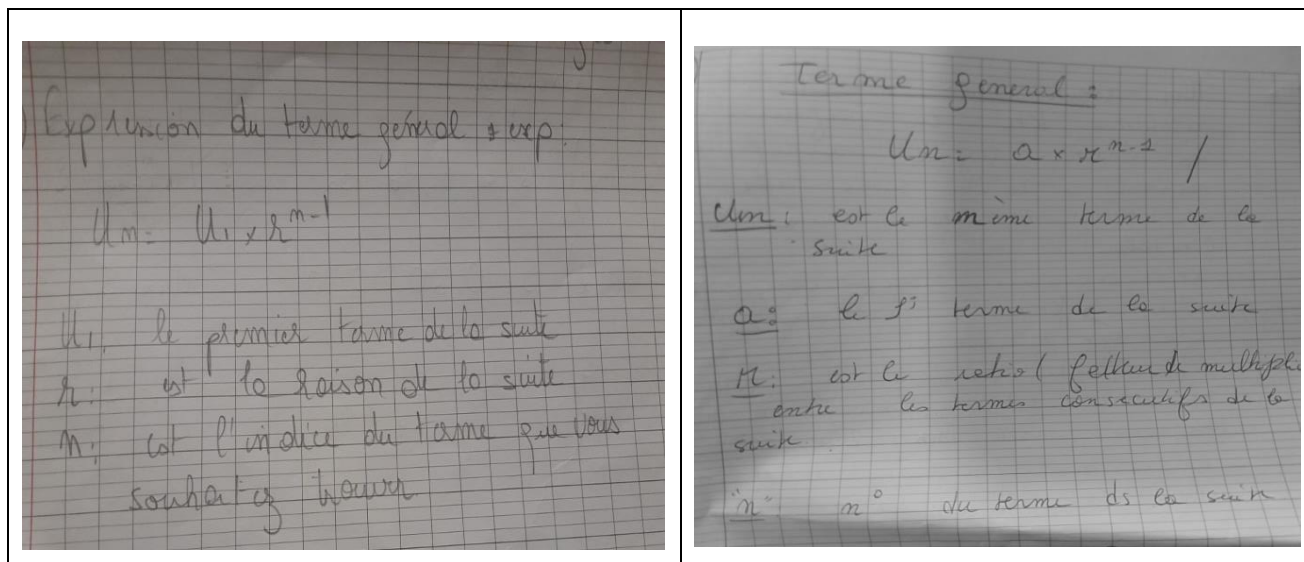 Expression du terme général exp:
Un = U1 x r^n-1
U1, le premier terme de la suite
r: est la raison de la suite
n: est l'indice du terme que vous
souhaitez trouver
Terme general:
Un = a x r^n-1 /
Un: est le nième terme de la
suite
a: le terme de la suite
r: est le ratio (facteur de multipl
entre les termes consécutifs de la
suite
"n" n° du terme ds la suite